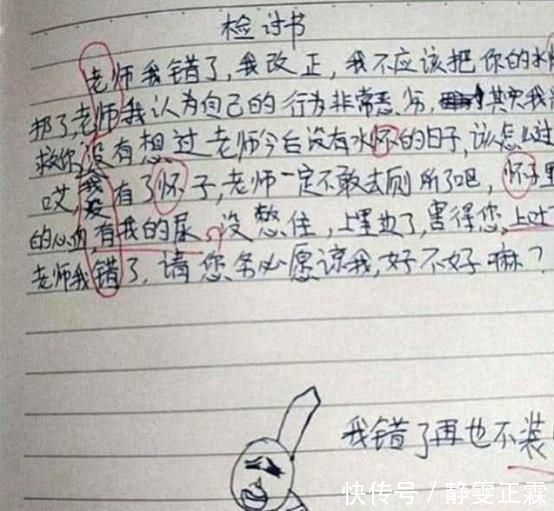 检讨书
老师我错了,我改正,我不应该把你的水
了,老师我认为自己的行为非常恶劣,其实我
救你没有想过老师今后没有水怀的日子,该怎么过
哎,我没有了怀子,老师一定不敢去厕所了吧,怀子里
的心血,有我的尿,没憋住,上里边了,害得您,上吐
老师我错了,请您务必愿谅我,好不好嘛?
我错了再也不装
快传号/静雯正霖